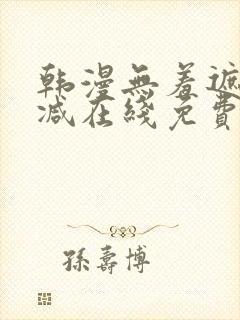 韩漫無羞遮
减在綫免費
孫壽博